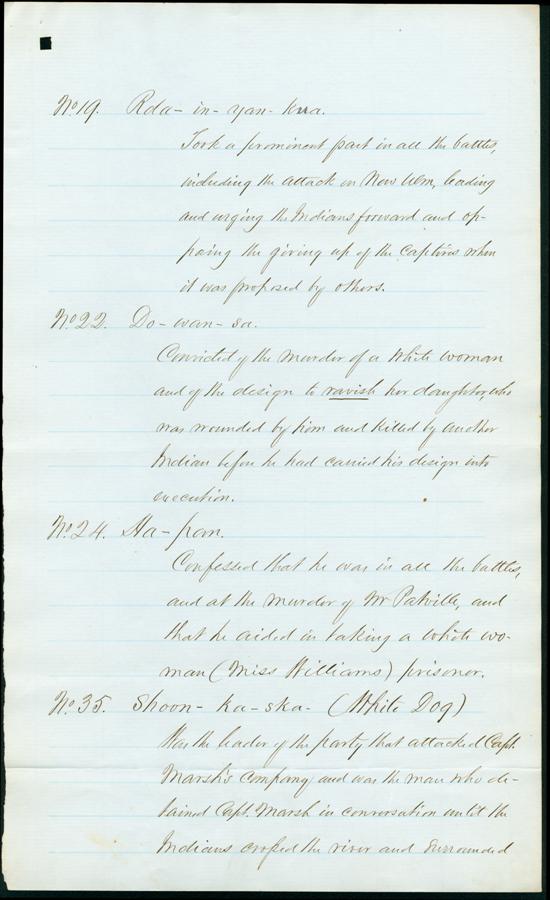 No. 19. Rda-in-yan-kna.
Took a prominent part in all the battles,
including the attack on New Ulm, leading
and urging the Indians forward and op-
posing the giving up of the captives when
it was proposed by others.
No. 22. Do-wan-sa.
Convicted of the murder of a white woman
and of the design to ravish her daughter, who
was wounded by him and killed by another
Indian before he had carried his design into
execution.
No. 24. Ha-pan.
Confessed that he was in all the battles,
and at the murder of Mr Patville, and
that he aided in taking a white wo-
man (Miss Williams) prisoner.
No. 35. Shoon-ka-ska- (White Dog)
Was the leader of the party that attacked Capt.
Marsh's company and was the man who de-
tained Capt. Marsh in conversation until the
Indians crossed the river and surrounded